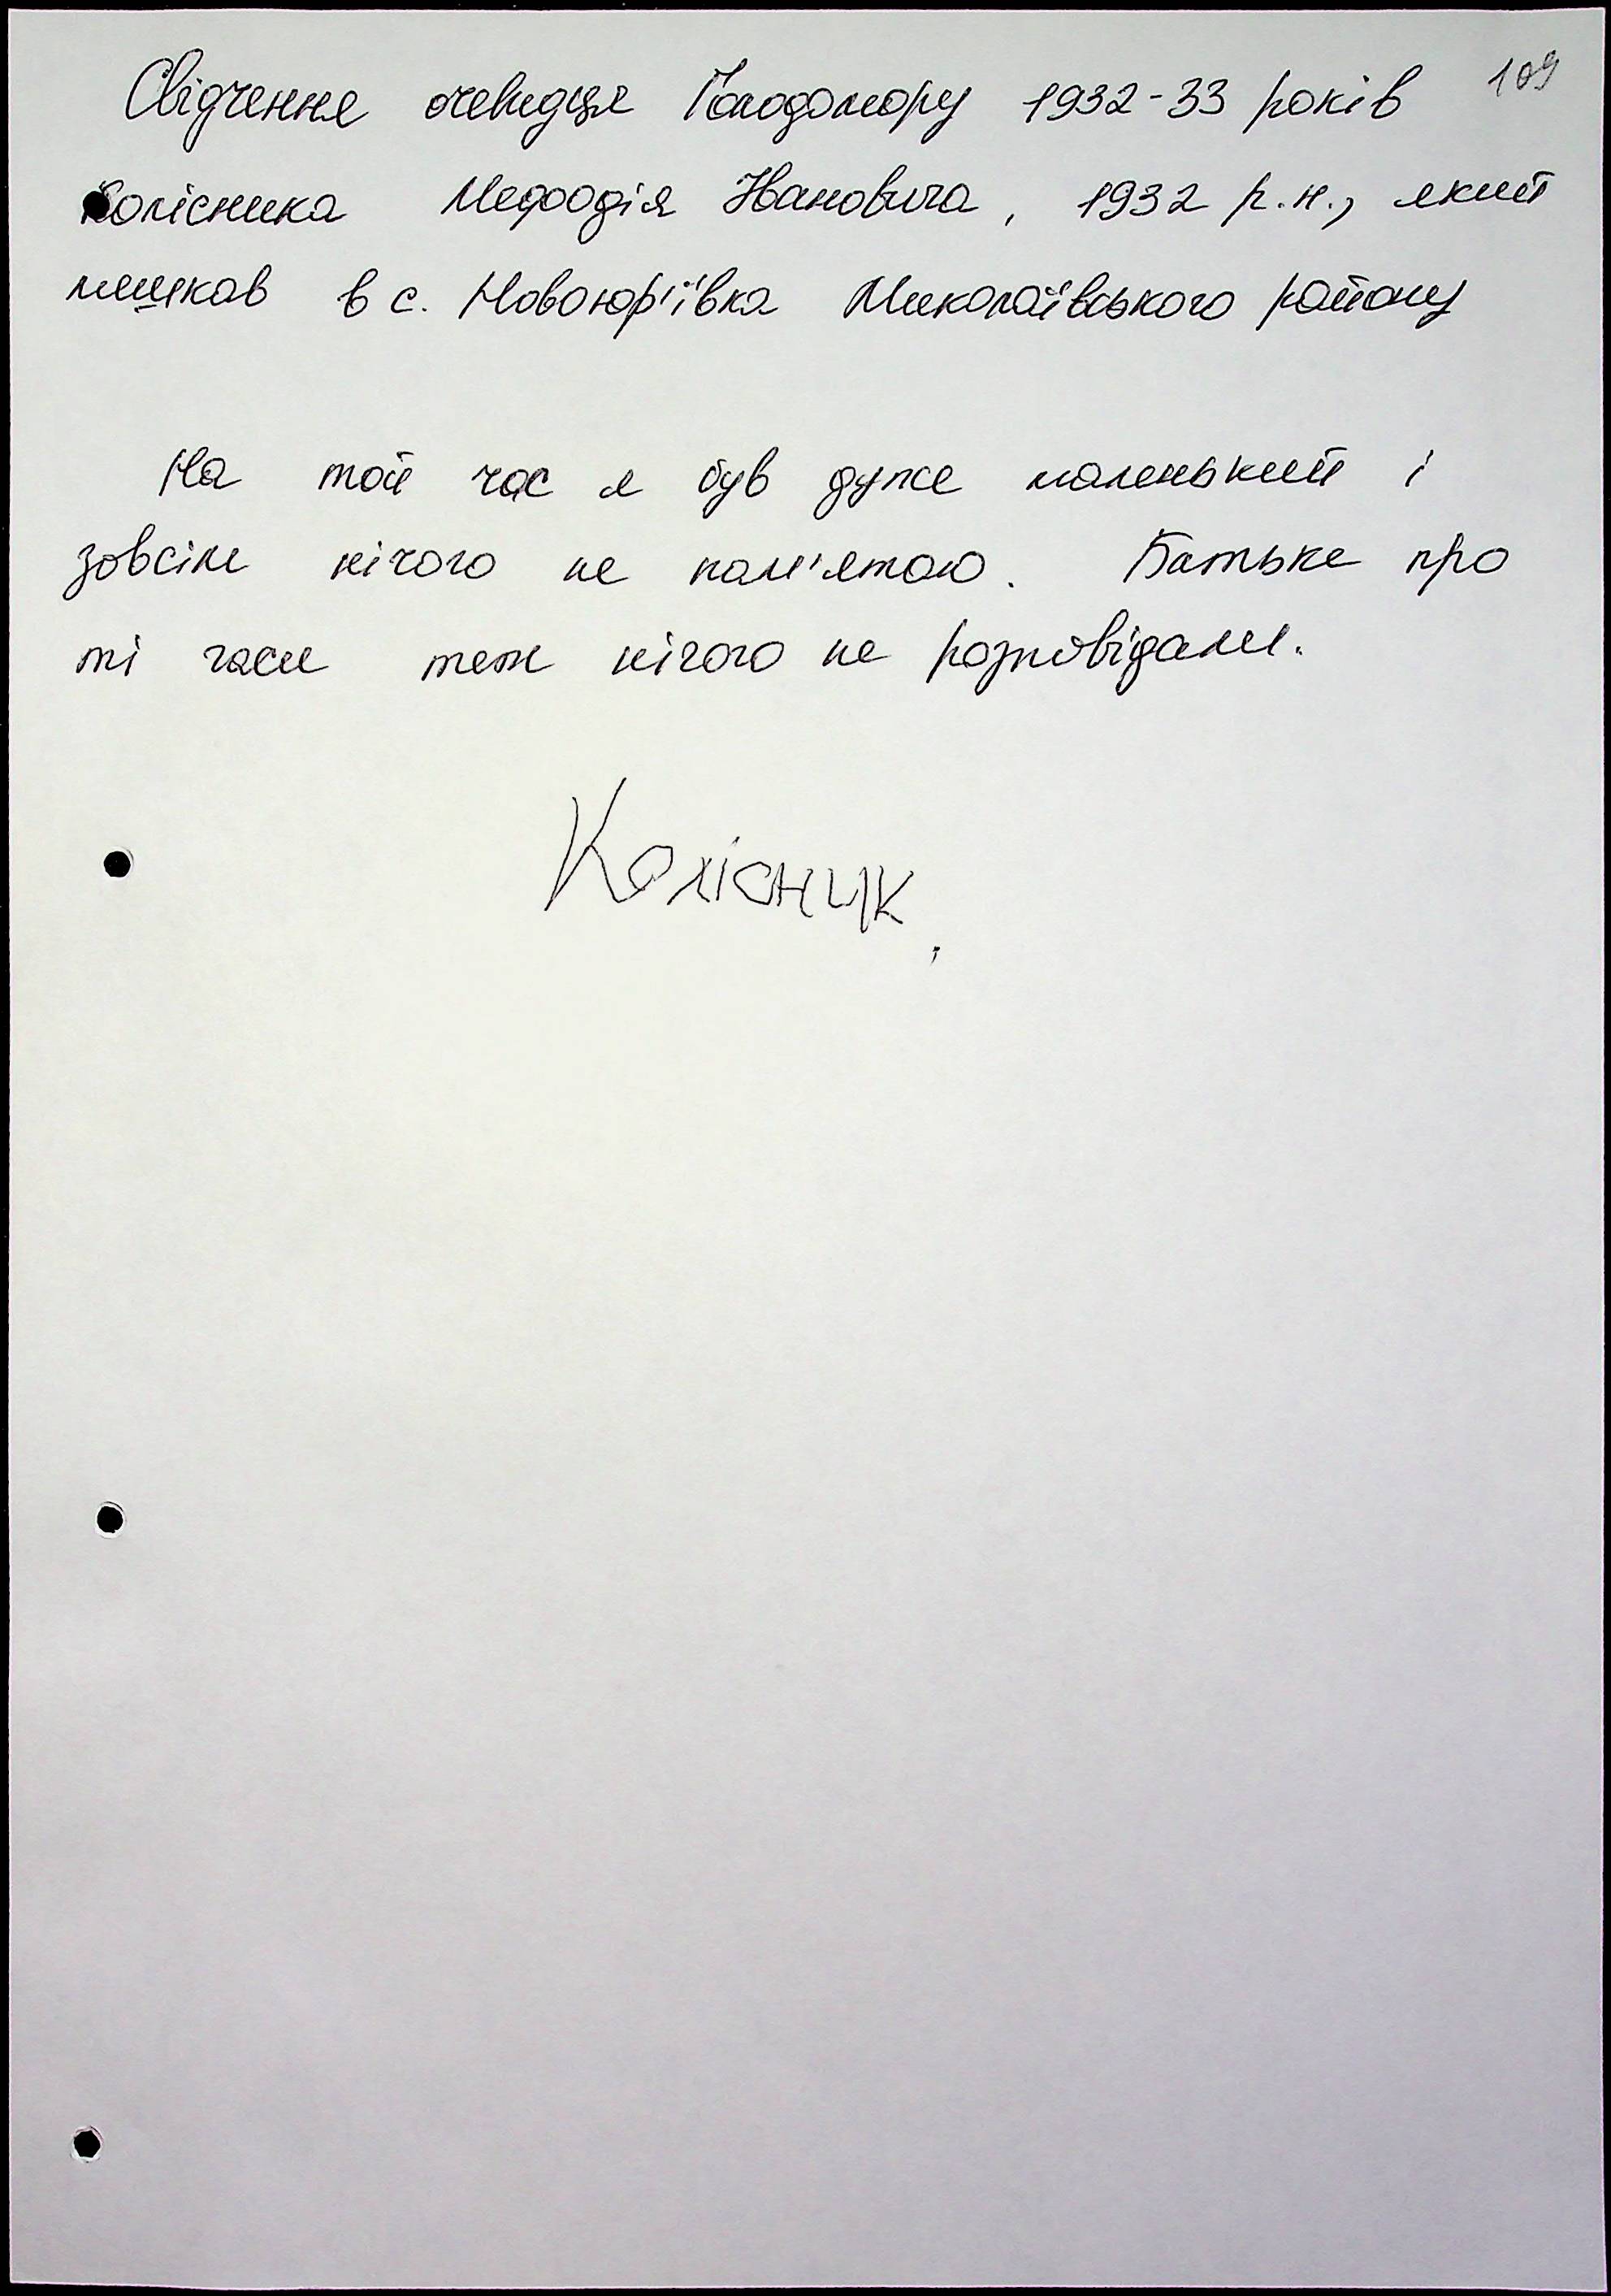 109
Свідчення очевидця Голодомору 1932-33 років
Колісника Мефодія Івановича, 1932 р.н., який
мешкав в с. Новоюр'ївка Миколаївського району
На той час я був дуже маленький і
зовсім нічого не пам'ятаю. Батьке про
ті часи теж нічого не розповідали.
Колісник.